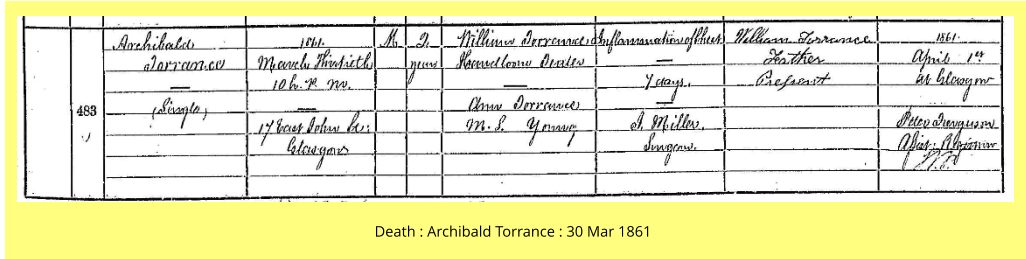 483
Archibald
Torrance
(Single)
1861.
March Thirtieth
10 h. P. M.
17 East John St:
Glasgow
M
2
years
William Torrance
Handloom
Ann Torrance
M. S. Young
Inflammation of Chest
7 days.
J. Miller,
Surgeon.
William Torrance
Father
Present
1861.
April 1st
At Glasgow
Peter Ferguson
Assist: Registrar
Death : Archibald Torrance : 30 Mar 1861